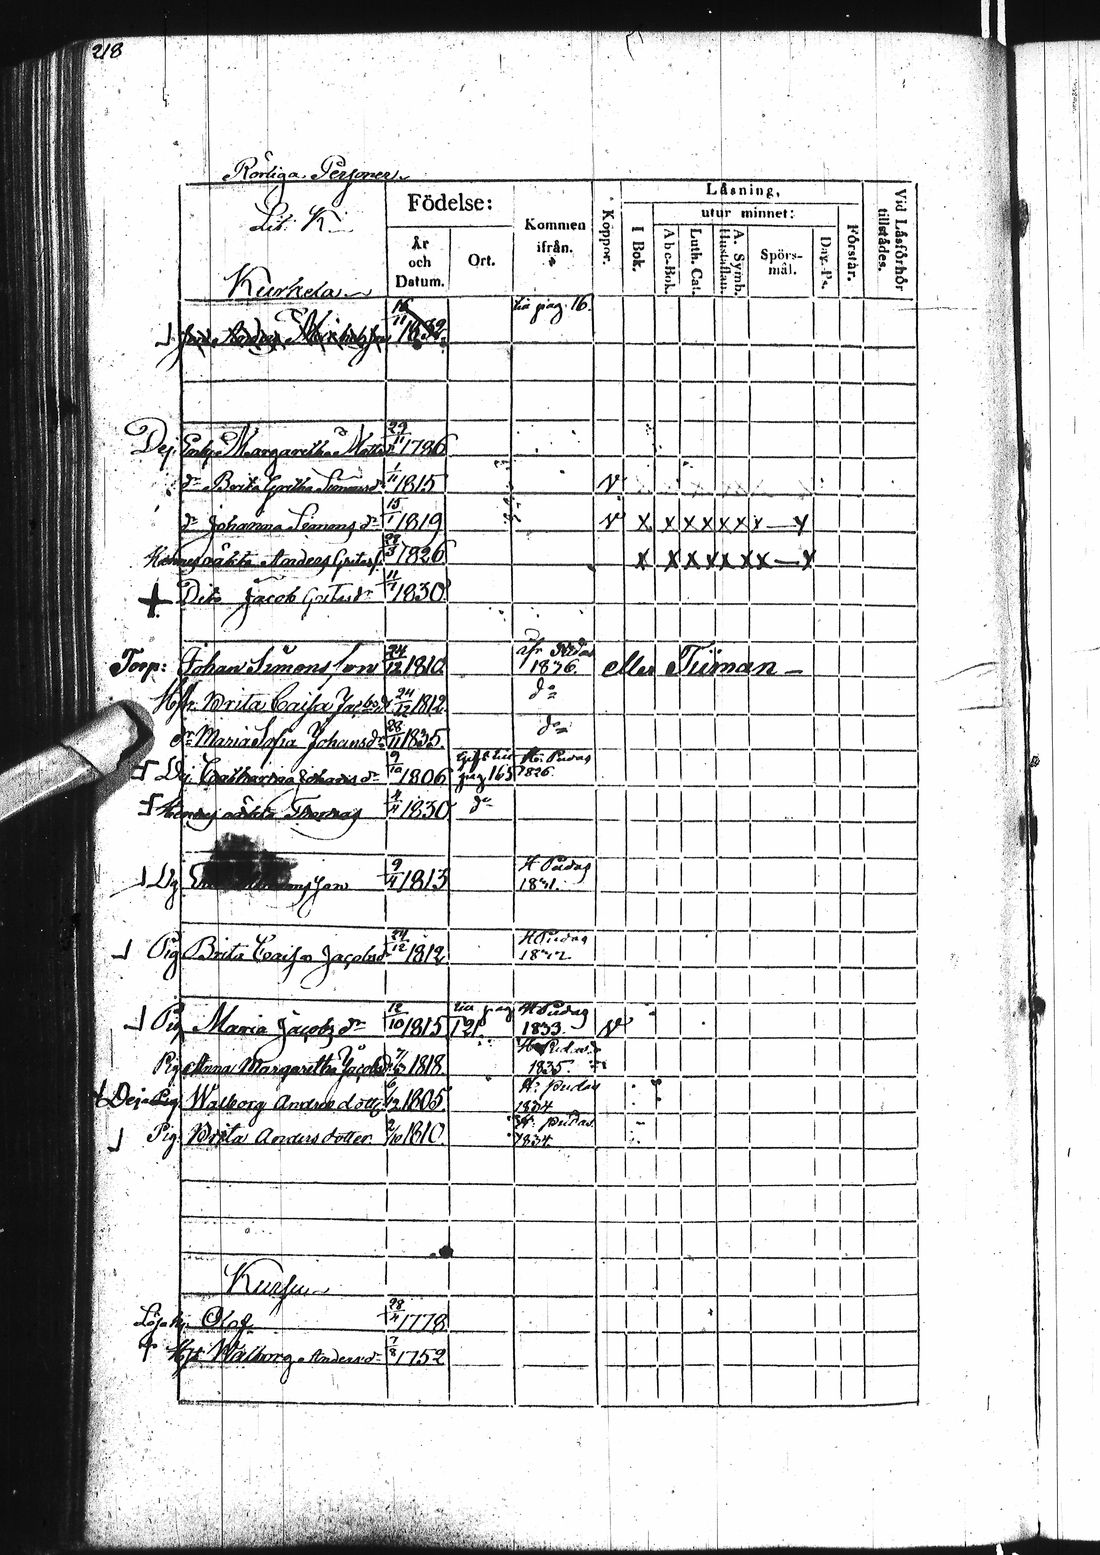 218
Rörliga Personer
Lit. K
Födelse:
År
och
Datum.
Ort.
Kommen
ifrån.
Köppor.
Läsning,
utur minnet:
I Bok.
Abc-Bok.
Luth. Cat.
A. Symb.
Hustaflan.
Spörs-
mål.
Dav. Ps.
Förstår.
Vid Läsförhör
tillstädes.
Kurkela
Anders Michelsson 16/11 1832 pag. 16.
Dej. Margaretha 29/11 1786
dr Brita Greta Simonsdr 1/11 1815 V
dr Johanna Simons dr 15/1 1819 V X X X X X X X — X
Hennes oäkta Anders 1826 X X X X X X X — X
+ Dito Jacob 11/7 1830
Torp: Johan Simons son 24/12 1810 1836. eller Tiiman —
Hu. Brita Caisa Jacobsdr 24/12 1812 do
dr Maria Sofia Johansdr 28/11 1835. do
Dej Catharina Johans dr 9/10 1806 Gift pag 165 H: Pudas 1826
Hennes oäkta Thomas 4/4 1830 do
Dg 9/4 1813 H Pudas 1831.
Pig Brita Caisa Jacobsdr 24/12 1812 H Pudas
Pig Maria Jacobs dr 12/10 1815 pag 121. H Pudas 1833. V
Pig Anna Margaretha Jacobsdr 7/3 1818 H Pudas 1835.
Deja Pig Walborg Anders dotter 6/12 1805 H: pudas 1834
Pig. Brita Anders dotter 2/10 1810 H: pudas 1834.
Kursu
Olof 28/4 1778
+ Walborg Andersdr 7/8 1752